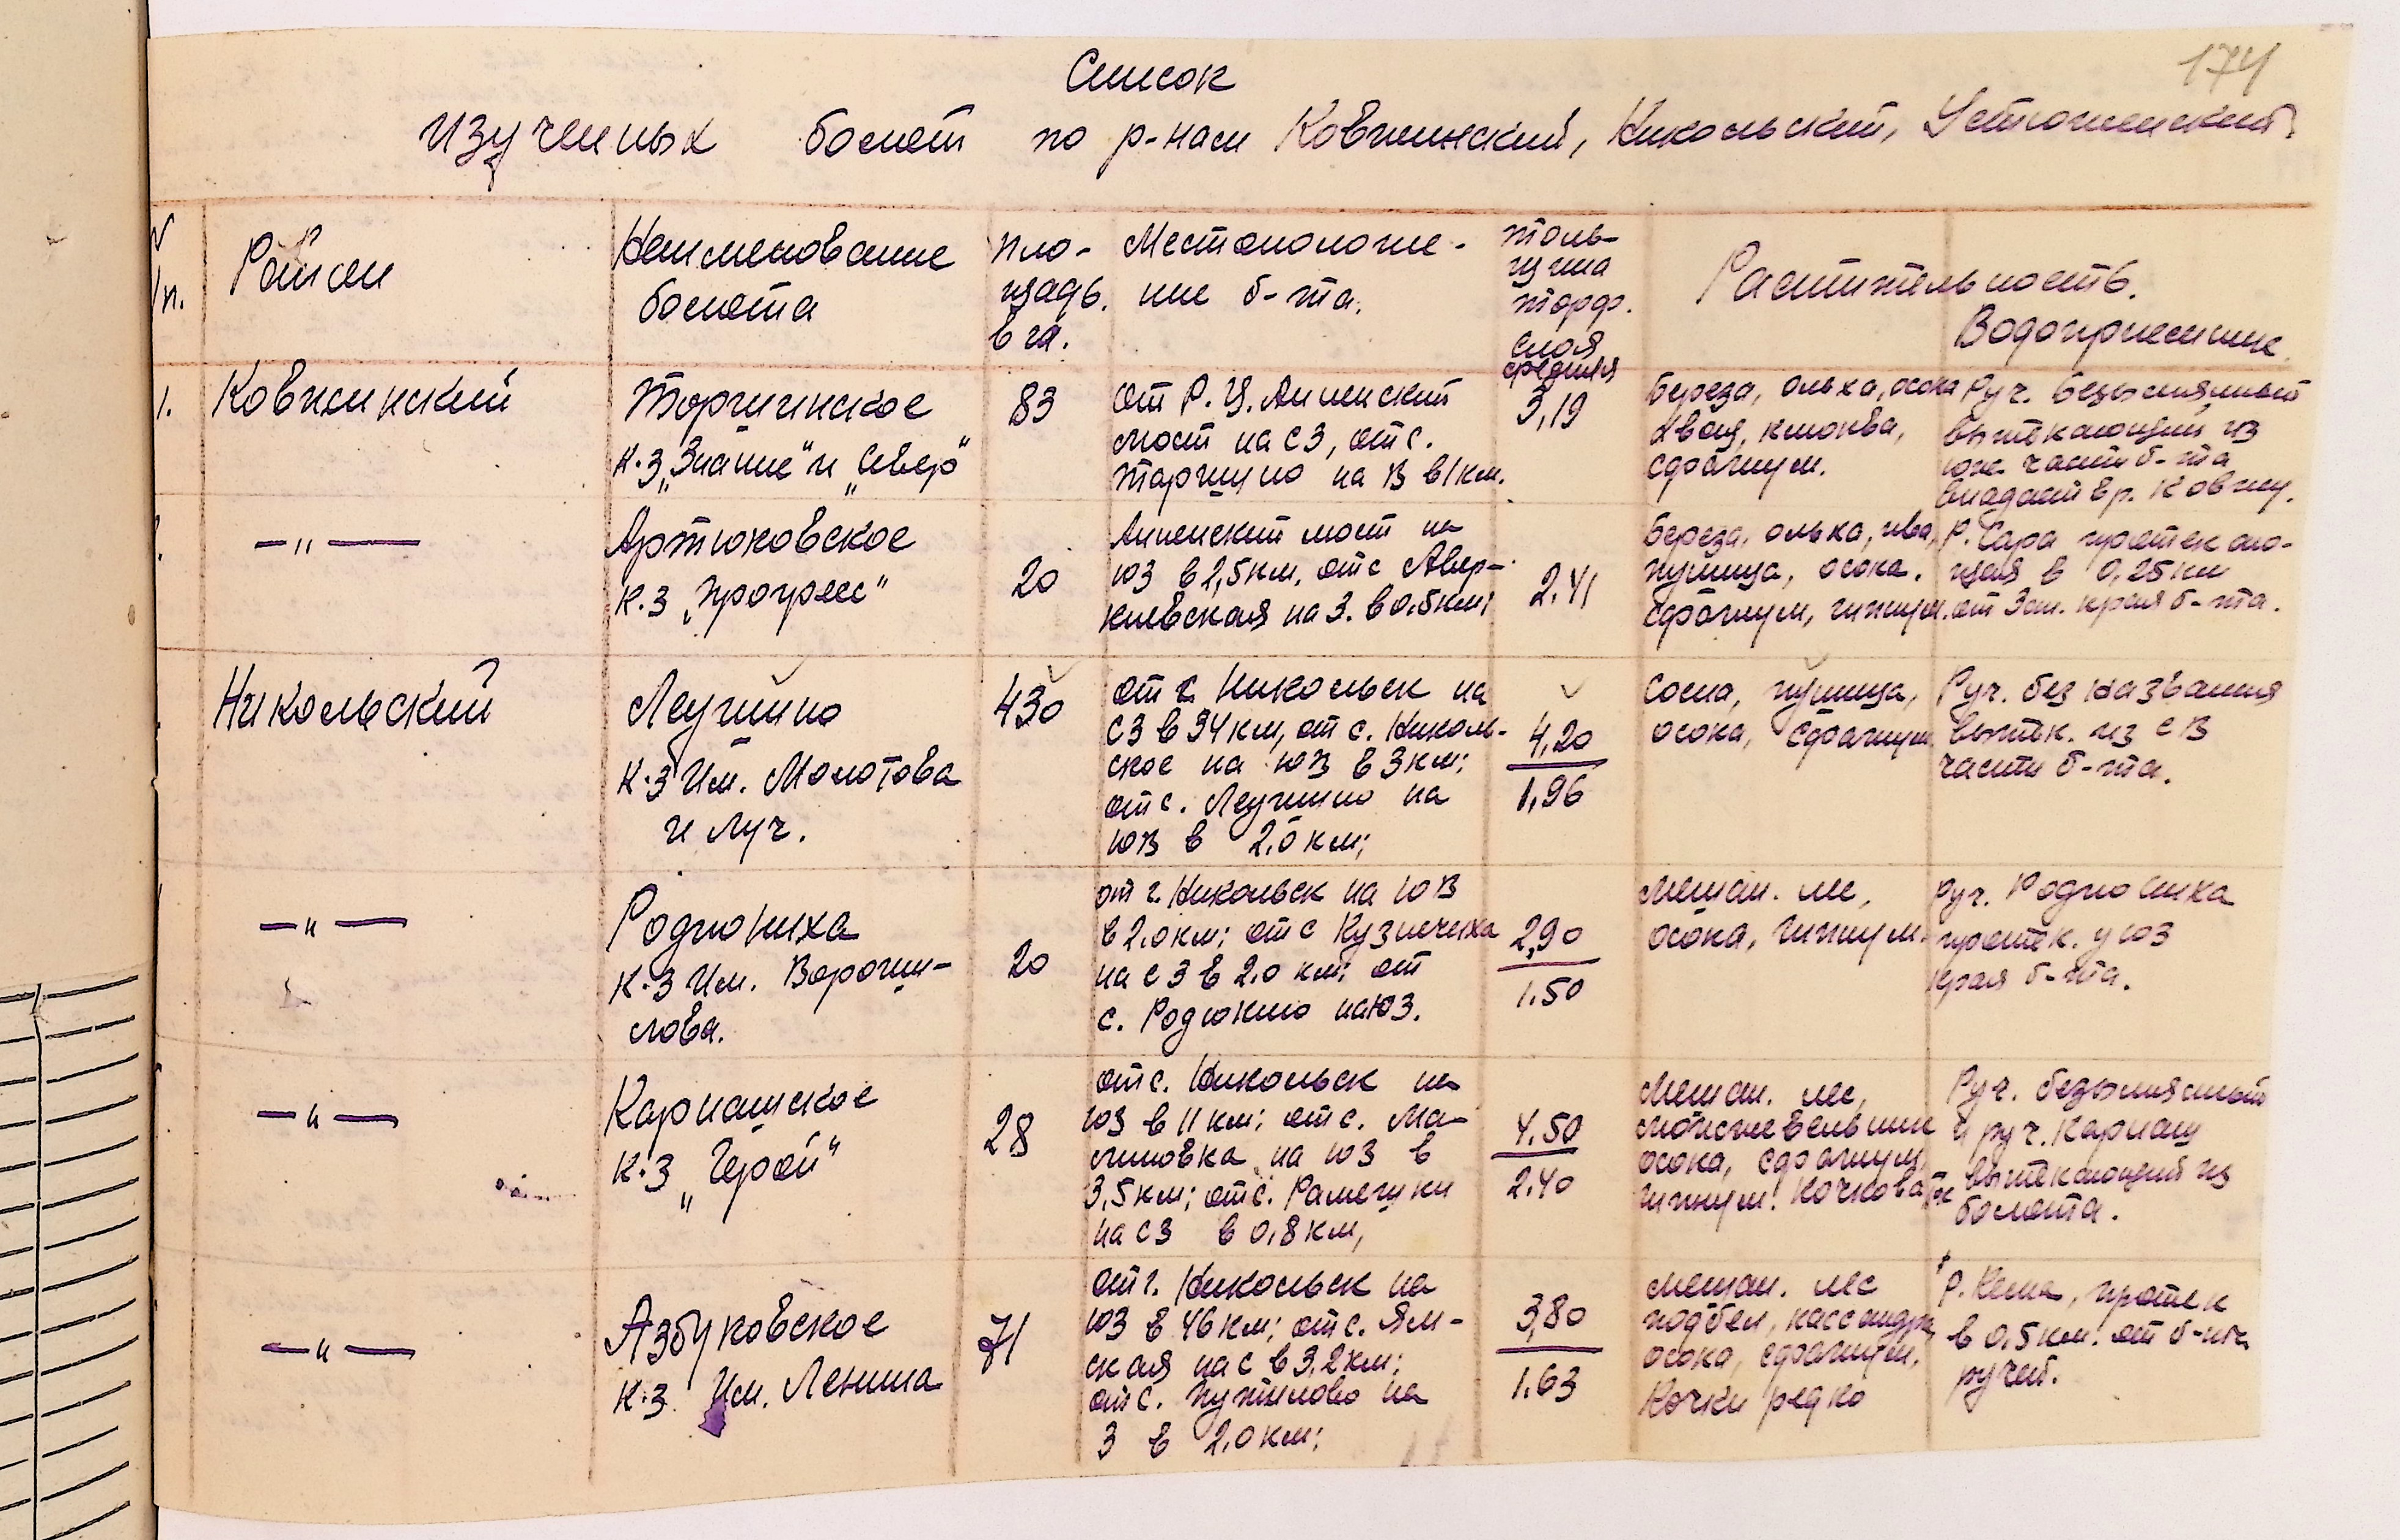 174
Список
изученных болот по р-нам Ковжинский, Никольский, Устюженский.
№
/п.
Район
Наименование
болота
пло-
щадь
в га.
Местоположе-
ние б-та.
толь-
щина
торф.
слоя
средняя
Растительность.
Водоприемник.
1. Ковжинский
Торжинское
к-з „Знание" и „Север"
83
от Р.Ц. Анненский
мост на СЗ, от с.
на В в 1 км.
3,19
береза, ольха, осока
хвощ, клюква,
сфагнум.
Руч. безымянный
вытекающий из
юж. части б-та
впадает в р. Ковжу.
—"—
Артюковское
к.з „Прогресс"
20
Анненский мост на
ЮЗ в 2,5 км, от с Авер-
киевская на З. в 0.5 км;
2.41
береза, ольха, ива,
пушица, осока.
сфагнум, гипнум.
Р. Сара протекаю-
щая в 0,25 км
от Зап. края б-та.
Никольский
Леушино
к-з Им. Молотова
и Луч.
430
от г. Никольск на
СЗ в 34 км, от с. Николь-
ское на ЮВ в 3 км;
от с. Леушино на
ЮВ в 2.0 км;
4,20
1,96
Сосна, пушица,
осока, сфагнум.
Руч. без названия
вытек. из СВ
части б-та.
—"—
Родюниха
к-з Им. Вороши-
лова.
20
от г. Никольск на ЮВ
в 2.0 км; от с Кузнечиха
на СЗ в 2.0 км; от
с. Родюкино на ЮЗ.
2,90
1.50
Мешан. лес,
осока, гипнум.
руч. Родюниха
протек. у ЮЗ
края б-та.
—"—
Карнашское
к-з „Герой"
28
от с. Никольск на
ЮЗ в 11 км; от с. Ма-
линовка на ЮЗ в
3,5 км; от с. Рамешки
на СЗ в 0,8 км,
4.50
2.40
Мешан. лес,
можжевельник
осока, сфагнум,
гипнум. Кочковат.
Руч. безымянный
и руч. Карнаш
вытекающий из
болота.
—"—
Азбуковское
к-з Им. Ленина
71
от г. Никольск на
ЮЗ в 46 км; от с. Ям-
ская на С в 3,2 км;
от с. Путилово на
З в 2.0 км;
3,80
1.63
мешан. лес
подбел, кассандра,
осока, сфагнум.
Кочки редко
р. Кема, протек
в 0.5 км. от б-та
ручей.